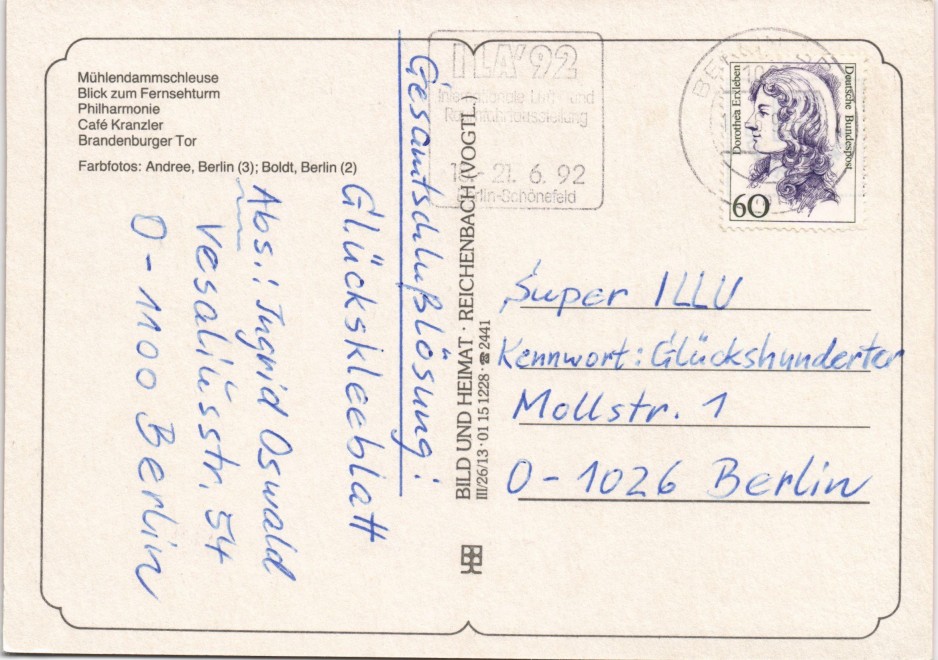 Mühlendammschleuse
Blick zum Fernsehturm
Philharmonie
Café Kranzler
Brandenburger Tor
Farbfotos: Andree, Berlin (3); Boldt, Berlin (2)
Gesamtschlußlösung:
Glückskleeblatt
Abs.: Ingrid Oswald
Vesaliusstr. 54
O-1100 Berlin
BILD UND HEIMAT · REICHENBACH (VOGTL.)
III/26/13 · 01 15 1228 · ☎ 2441
ILA'92
Internationale Luft- und
21. 6. 92
Berlin-Schönefeld
BERLIN
Dorothea Erxleben
Deutsche Bundespost
60
Super ILLU
Kennwort: Glückshunderter
Mollstr. 1
O-1026 Berlin